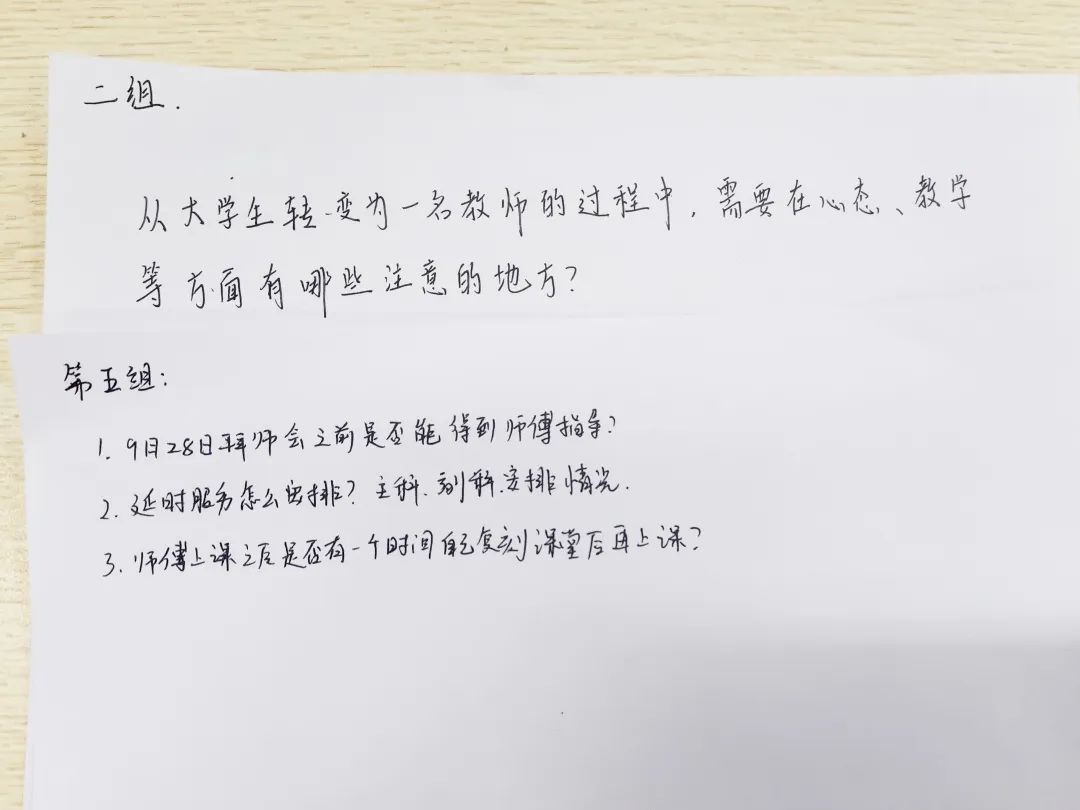 二组.
从大学生转变为一名教师的过程中，需要在心态、教学
等方面有哪些注意的地方？
第五组：
1. 9月28日拜师会之前是否能得到师傅指导？
2. 延时服务怎么安排？主科、副科、安排情况.
3. 师傅上课之后是否有一个时间自己复刻课堂后再上课？